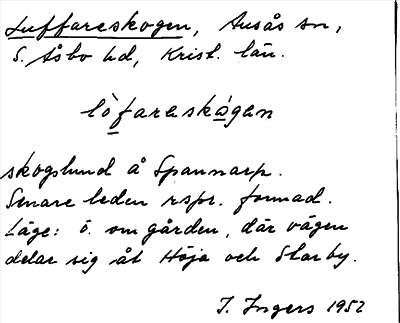 Luffareskogen, Ausås sn,
S. Åsbo hd, Krist. län.
lòfareskågen
skogslund å Spannarp.
Senare leden rspr. formad.
Läge: ö. om gården, där vägen
delar sig åt Höja och Starby.
I. Ingers 1952